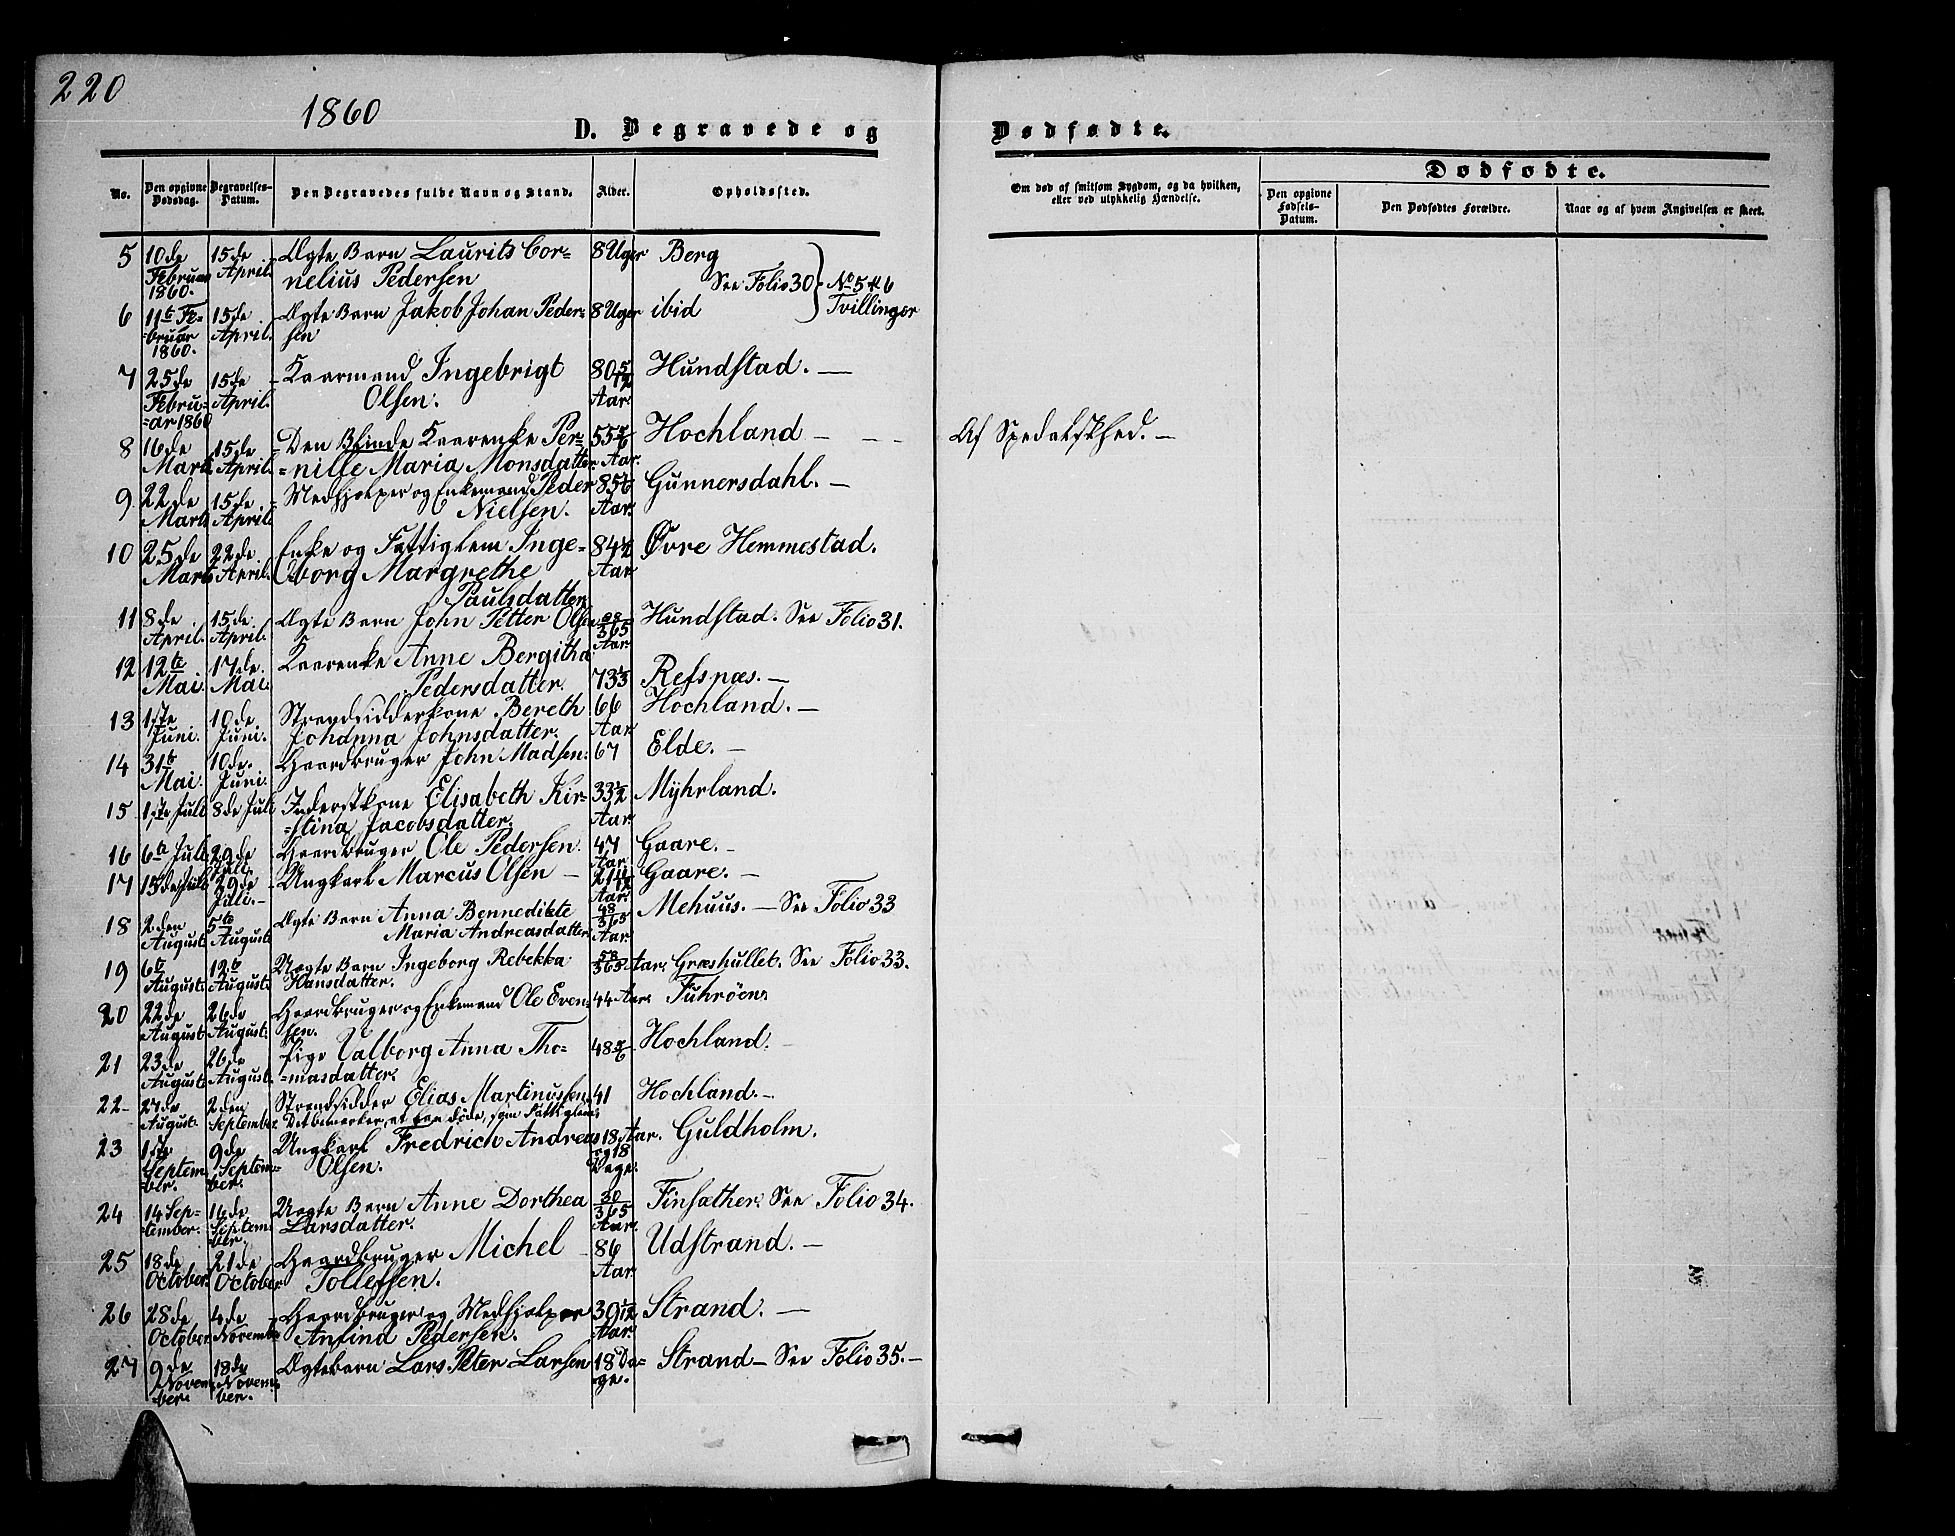 220
1860
D. Begravede og
Dødfødte.
No.
Den opgivne Dødsdag.
Begravelses-Datum.
Den Begravedes fulde Navn og Stand.
Alder.
Opholdssted.
Om død af smitsom Sygdom, og da hvilken, eller ved ulykkelig Hændelse.
Dødfødte.
Den opgivne Fødsels-Datum.
Den Dødfødtes Forældre.
Naar og af hvem Angivelsen er skeet.
5 10de Februar 1860. 15de April. Ægte Barn Laurits Cor=
nelius Pedersen 8 Uger Berg
See Folio 30 No 5 & 6
Tvillinger
6 11te Fe=bruar 1860. 15de April. Ægte Barn Jakob Johan Peder=
sen 8 Uger ibid
7 25de Febru=ar 1860 15de April. Kaarmand Ingebrigt
Olsen. 80 5/12 Aar Hundstad. —
8 16de Marts 15de April. Den Blinde Kaarenke Per=
=nille Maria Monsdatter 55 Aar. Hochland — Af Spedalskhed. —
9 22de Marts 15de April. Medhjælper og Enkemand Peder
Nielsen. 85 Aar. Gunnersdahl. —
10 25de Marts 22de April. Enke og Fattiglem Inge=
borg Margrethe
Paulsdatter 84 Aar Øvre Hemmestad.
11 8de April. 15de April. Ægte Barn John Petter Olsen /365 Aar. Hundstad. See Folio 31.
12 12te Mai. 17de Mai. Kaarenke Anne Bergitha
Pedersdatter. 73 Refsnæs. —
13 1ste Juni. 10de Juni. Strandsidderkone Bereth
Johanna Johnsdatter. 66 Aar Hochland. —
14 31te Mai. 10de Juni. Gaardbruger John Madsen. 67 Elde. —
15 1ste Juli 8de Juli Inderstkone Elisabeth Kir=
=stina Jacobsdatter. 33 1/2 Aar. Myhrland.
16 6te Juli 29de Juli. Gaardbruger Ole Pedersen. 47 Aar. Gaare. —
17 15de Juli 29de Juli. — Ungkarl Marcus Olsen — 21 11/12 Aar. Gaare. —
18 2den August 5te August Ægte Barn Anna Bennedikte
Maria Andreasdatter 48/365 Aar. Mehuus. — See Folio 33
19 6te August. 12te August. Uægte Barn Ingeborg Rebekka
Hansdatter. /365 Aar. Græshullet. See Folio 33.
20 22de August. 26de August. Gaardbruger og Enkemand Ole Even=
sen. 44 Aar. Fuhrøen.
21 23de August. 26de August. Pige Valborg Anna Tho=
=masdatter. 48 Hochland. —
22 27de August. 2den September. Strandsidder Elias Martinussen 41 Hochland. —
Det bemærkes, at han døde, som Fattiglem.
23 1ste Septem=ber. 9de Septem=ber. Ungkarl Fredrich Andreas
Olsen. 18 Aar. og 18 Dage. Guldholm.
24 14 Sep=tember. 16de Septem=ber. Uægte Barn Anne Dorthea
Larsdatter. 30/365 Aar. Finsæther. See Folio 34.
25 18de October. 21de October Gaardbruger Michel
Tollefsen. 86 Aar Udstrand. —
26 28de October 4de Novemb. Gaardbruger og Medhjælper
Anfind Pedersen. 39 1/12 Aar. Strand. —
27 9de Novem=ber. 18de Novem=ber. Ægtebarn Lars Peter Larsen 18 Da=ge. Strand — See Folio 35. —